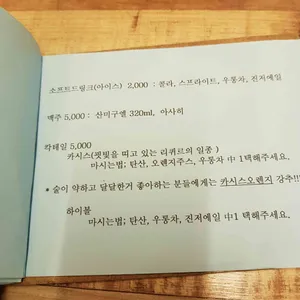 소프트드링크(아이스) 2,000 : 콜라, 스프라이트, 우롱차, 진저에일
맥주 5,000 : 산미구엘 320ml, 아사히
칵테일 5,000
카시스(핏빛을 띠고 있는 리퀴르의 일종)
마시는법; 탄산, 오렌지주스, 우롱차 中 1택해주세요.
* 술이 약하고 달달한거 좋아하는 분들에게는 카시스오렌지 강추!!!
하이볼
마시는법; 탄산, 우롱차, 진저에일 中1 택해주세요.